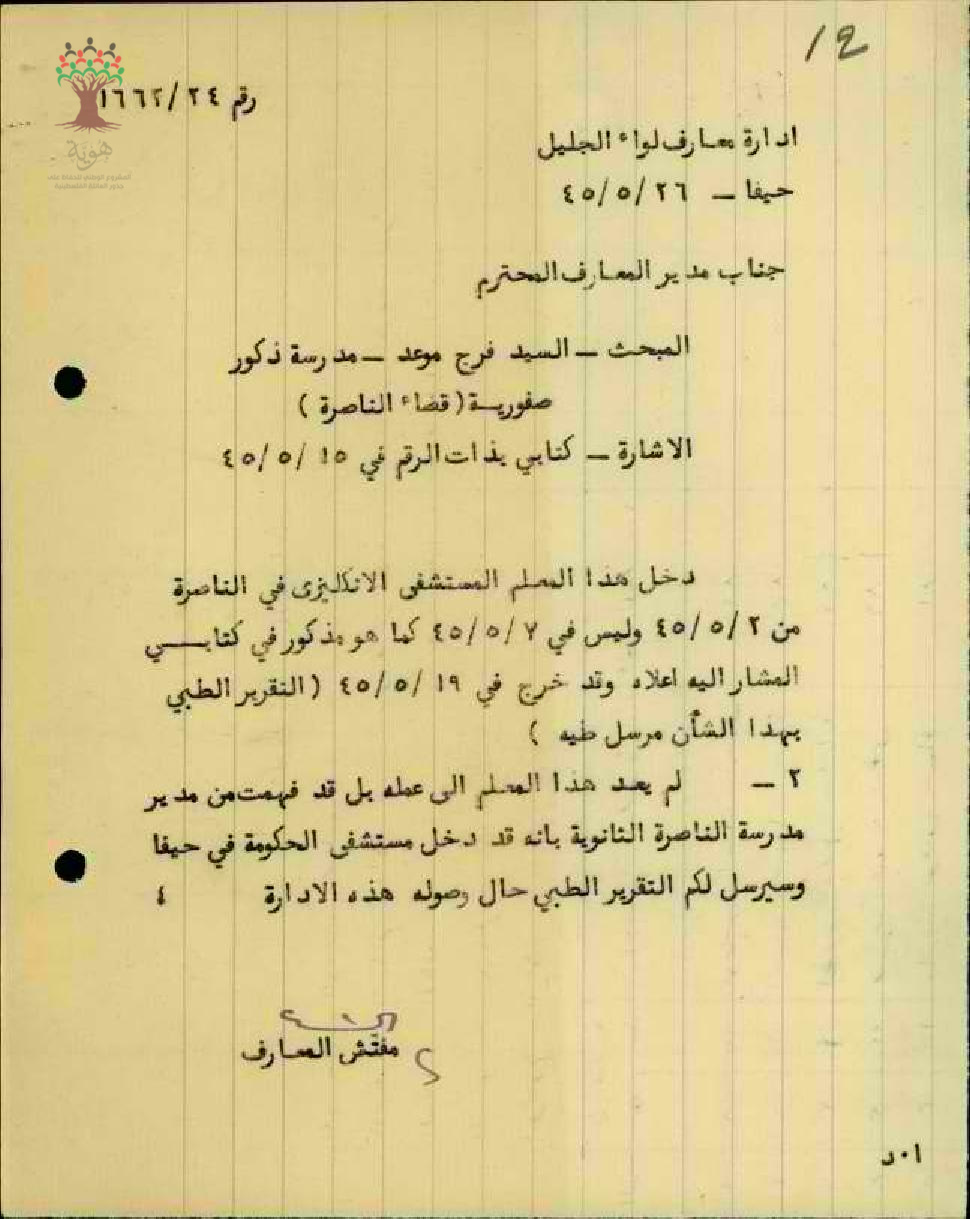 12
رقم ١٦٦٢/٢٤
هوية
المشروع الوطني للحفاظ على
جذور العائلة الفلسطينية
ادارة معارف لواء الجليل
حيفا – ٤٥/٥/٢٦
جناب مدير المعارف المحترم
المبحث – السيد فرج موعد – مدرسة ذكور
صفورية (قضاء الناصرة )
الاشارة – كتابي بذات الرقم في ٤٥/٥/١٥
دخل هذا المعلم المستشفى الانكليزى في الناصرة
من ٤٥/٥/٢ وليس في ٤٥/٥/٧ كما هو مذكور في كتابي
المشار اليه اعلاه وقد خرج في ٤٥/٥/١٩ (التقرير الطبي
بهذا الشأن مرسل طيه )
٢ – لم يعد هذا المعلم الى عمله بل قد فهمت من مدير
مدرسة الناصرة الثانوية بانه قد دخل مستشفى الحكومة في حيفا
وسيرسل لكم التقرير الطبي حال وصوله هذه الادارة ٤
مفتش المعارف
ا٠د